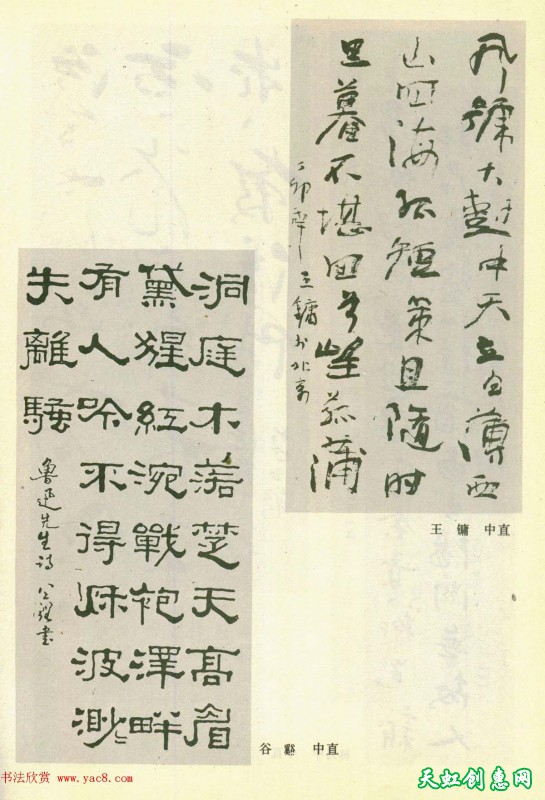 风號大樹中天立日薄西
山四海孤短策且随时
旦暮不堪回首望菰蒲
丁卯年王鏞书北京
王 镛 中直
洞庭木落楚天高眉
黛猩紅涴戰袍澤畔
有人吟不得秌波渺〻
失離騷
魯迅先生詩 谷谿書
谷 谿 中直
书法欣赏 www.yac8.com
天虹创意网